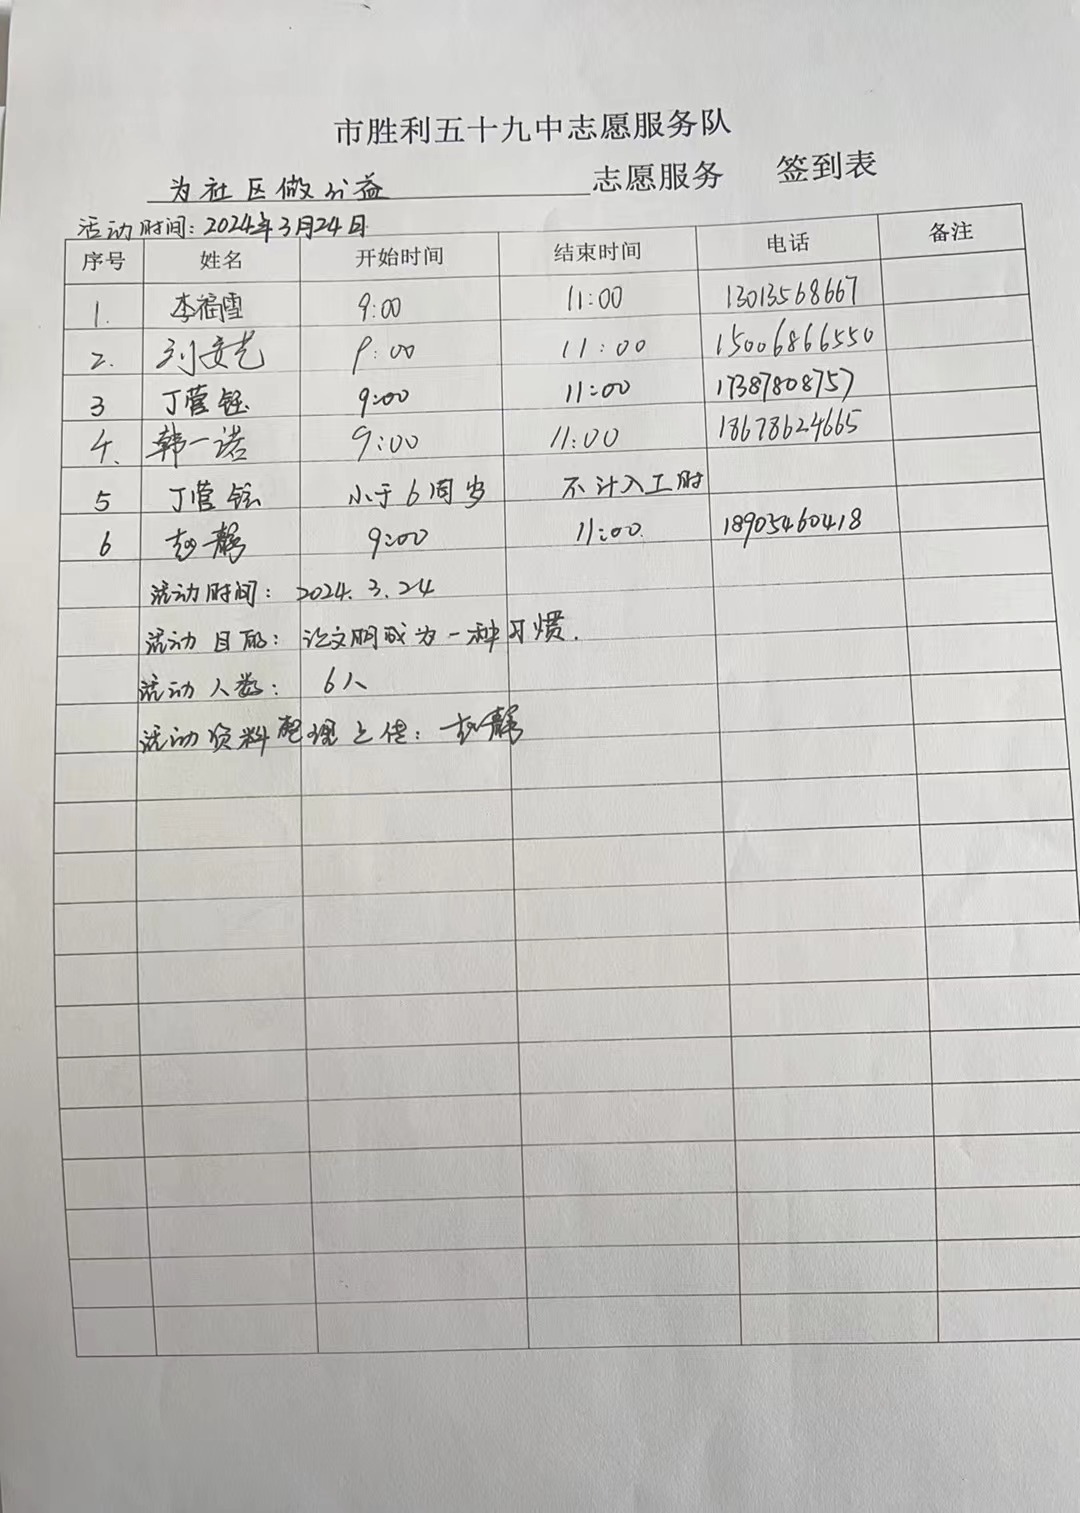 市胜利五十九中志愿服务队
为社区做公益 志愿服务 签到表
活动时间：2024年3月24日
序号 姓名 开始时间 结束时间 电话 备注
1. 李福雪 9:00 11:00 13013568667
2. 刘文艺 9:00 11:00 15006866550
3 丁萱钰 9:00 11:00 17387808757
4. 韩一诺 9:00 11:00 18678624665
5 丁萱 小于6周岁 不计入工时
6 赵静 9:00 11:00. 18905460418
活动时间： 2024.3.24
活动目的： 让文明成为一种习惯.
活动人数： 6人
活动资料整理上传：赵静